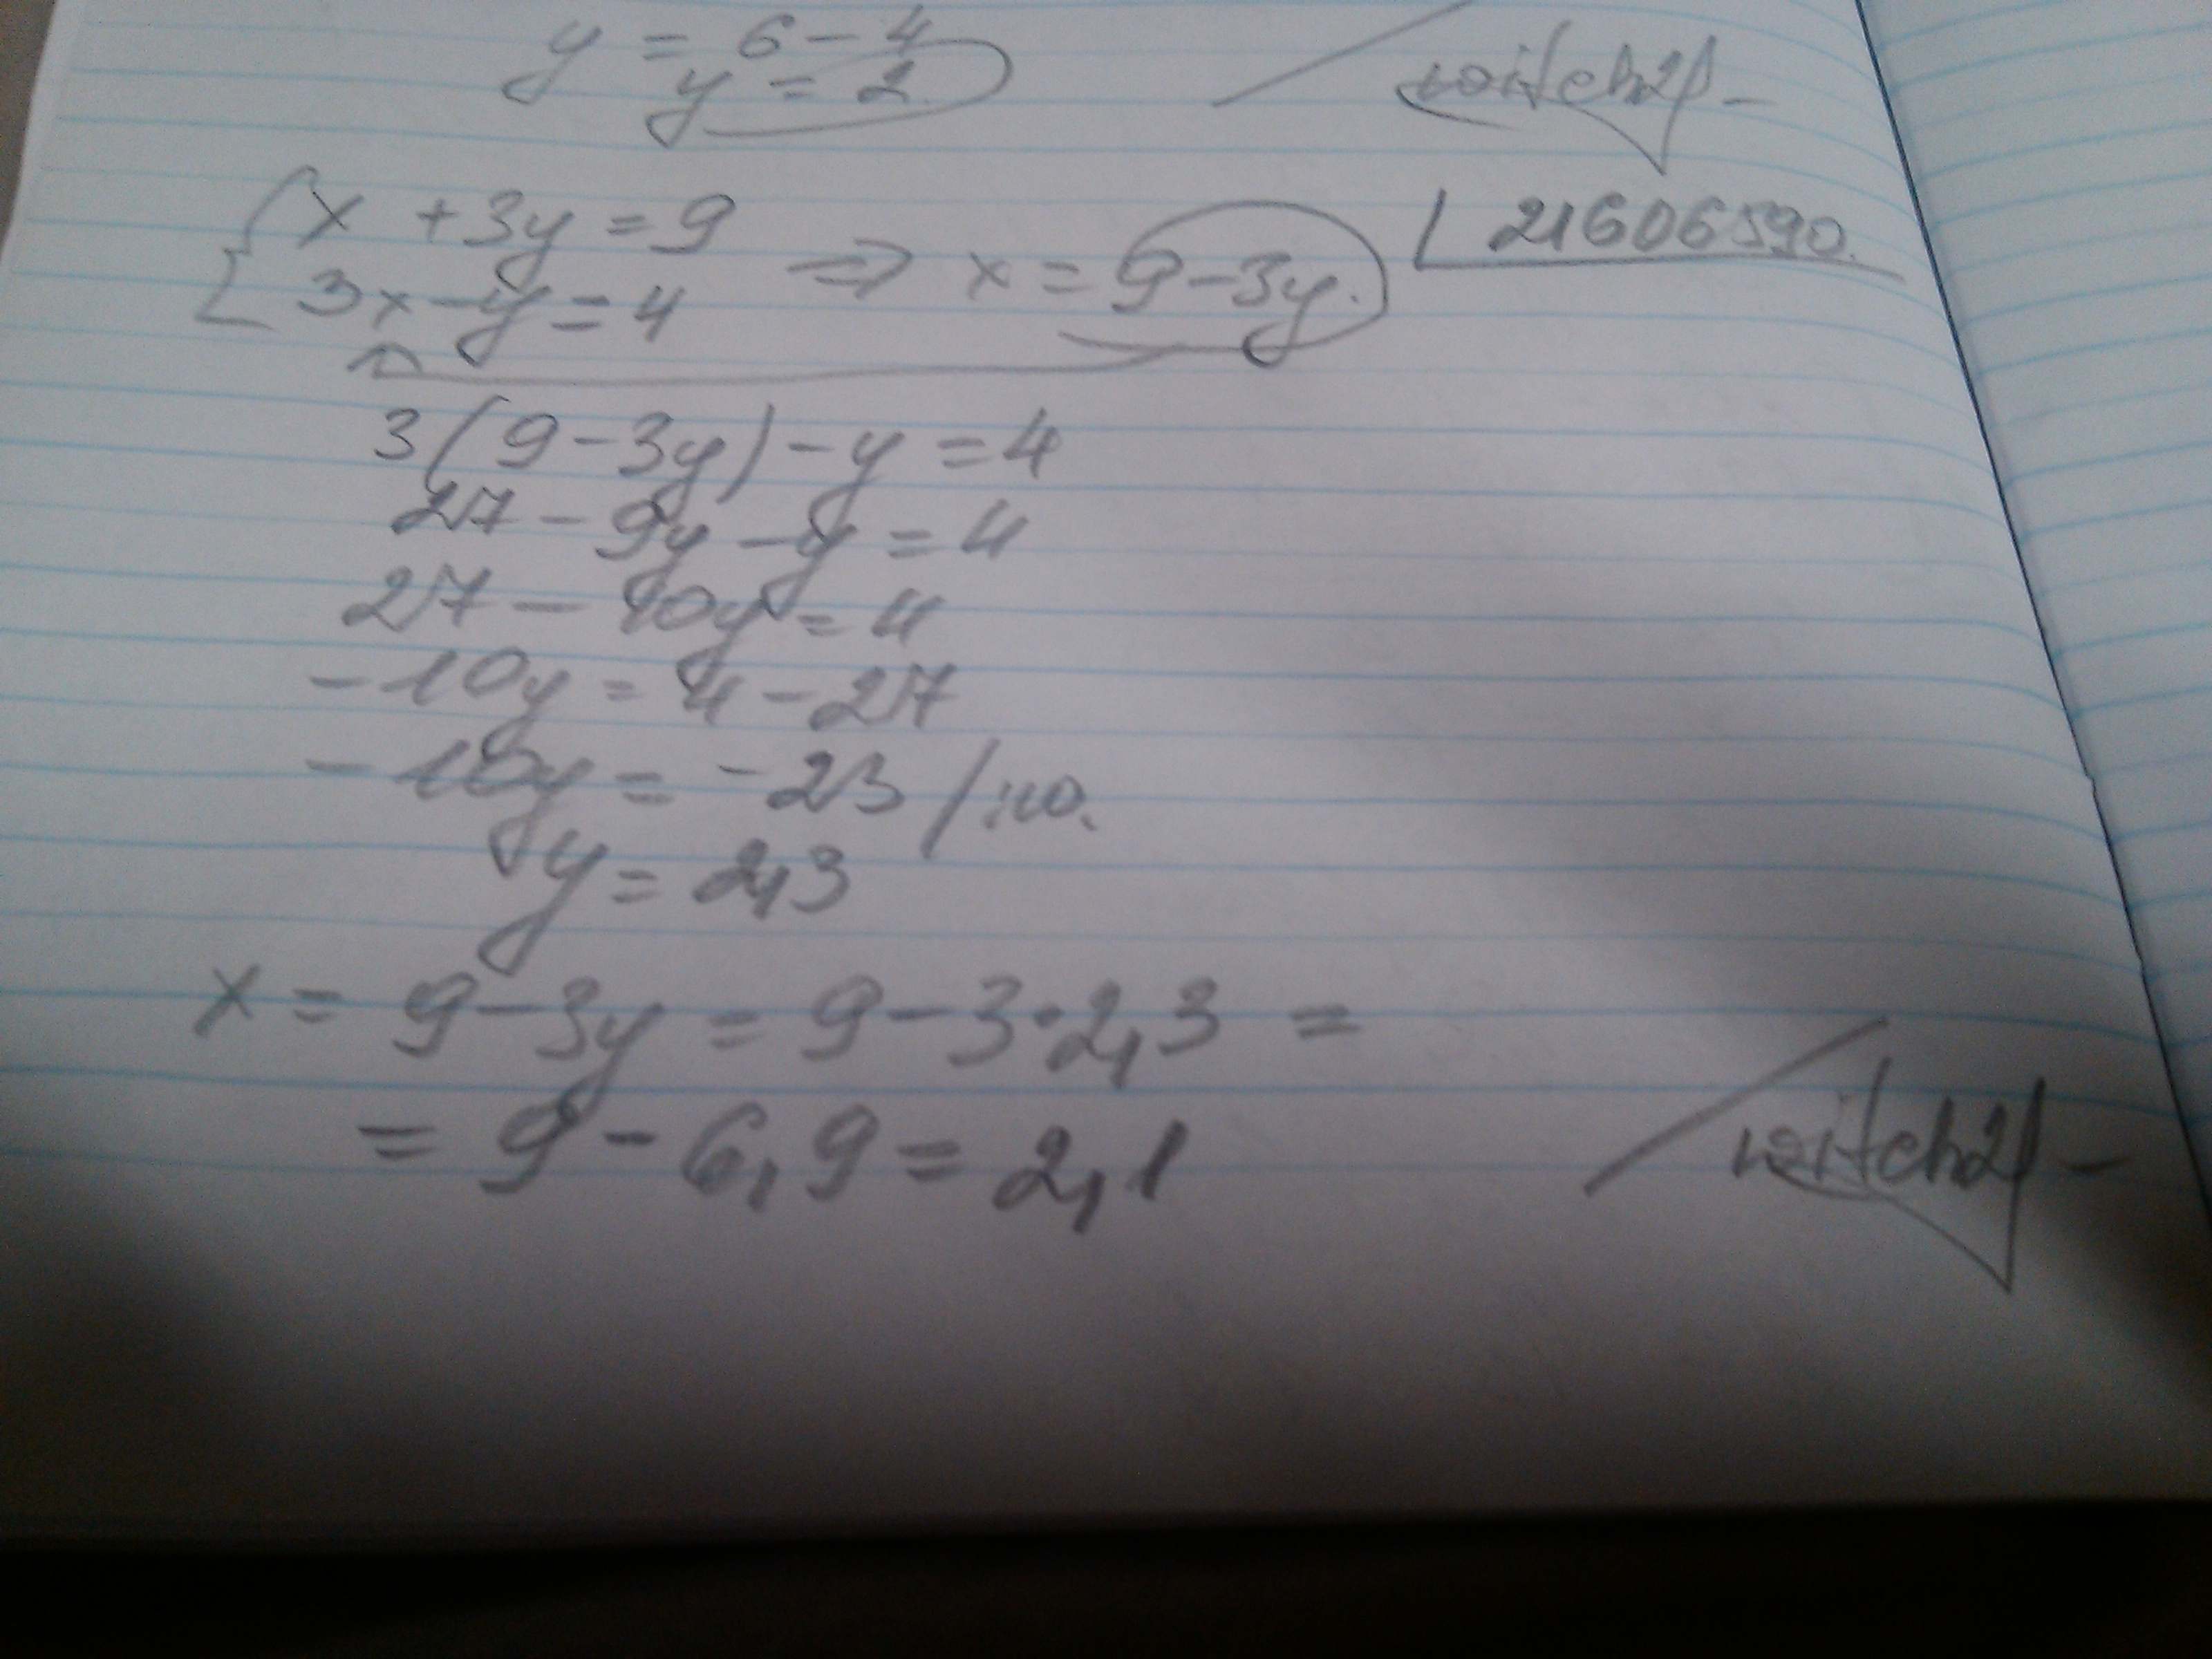 y = 6 - 4
y = 2
witch21-
x + 3y = 9
3x - y = 4
⇒ x = 9 - 3y.
21606590.
3(9 - 3y) - y = 4
27 - 9y - y = 4
27 - 10y = 4
-10y = 4 - 27
-10y = -23 /:10.
y = 2,3
x = 9 - 3y = 9 - 3·2,3 =
= 9 - 6,9 = 2,1
witch21-